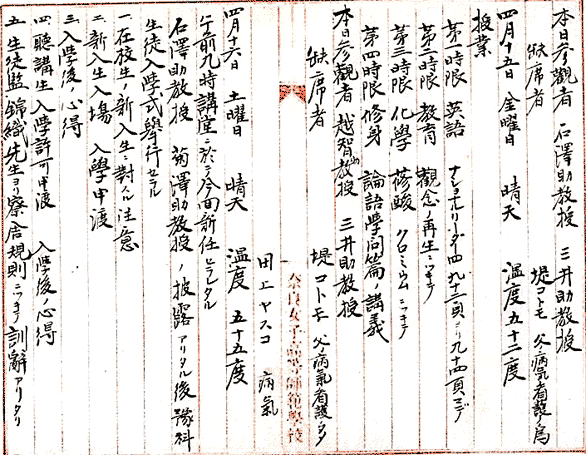 本日参観者 石澤助教授 三井助教授
缺席者 堤コトモ 父ノ病氣看護ノ爲
四月十五日 金曜日 晴天 温度五十二度
授業
第一時限 英語 ナショナルリーダー四 九十二頁ヨリ九十四頁マデ
第二時限 教育 觀念ノ再生ニツキテ
第三時限 化學 蓚酸 クロミウムニツキテ
第四時限 修身 論語學問篇ノ講義
本日参觀者 越智教授 三井助教授
缺席者 堤コトモ 父ノ病氣看護ノタメ
田上ヤスコ 病氣
奈良女子高等師範學校
四月十六日 土曜日 晴天 温度 五十五度
午前九時講堂ニ於テ今回新任セラレタル
石澤助教授 菊澤助教授ノ披露アリタル後豫科
生徒入學式擧行セラル
一、在校生ノ新入生ニ對スル注意
二、新入生入場 入學申渡
三、入學後ノ心得
四、聽講生入學許可申渡 入學後ノ心得
五、生徒監錦織先生ヨリ寮舎規則ニツキテ訓辭アリタリ